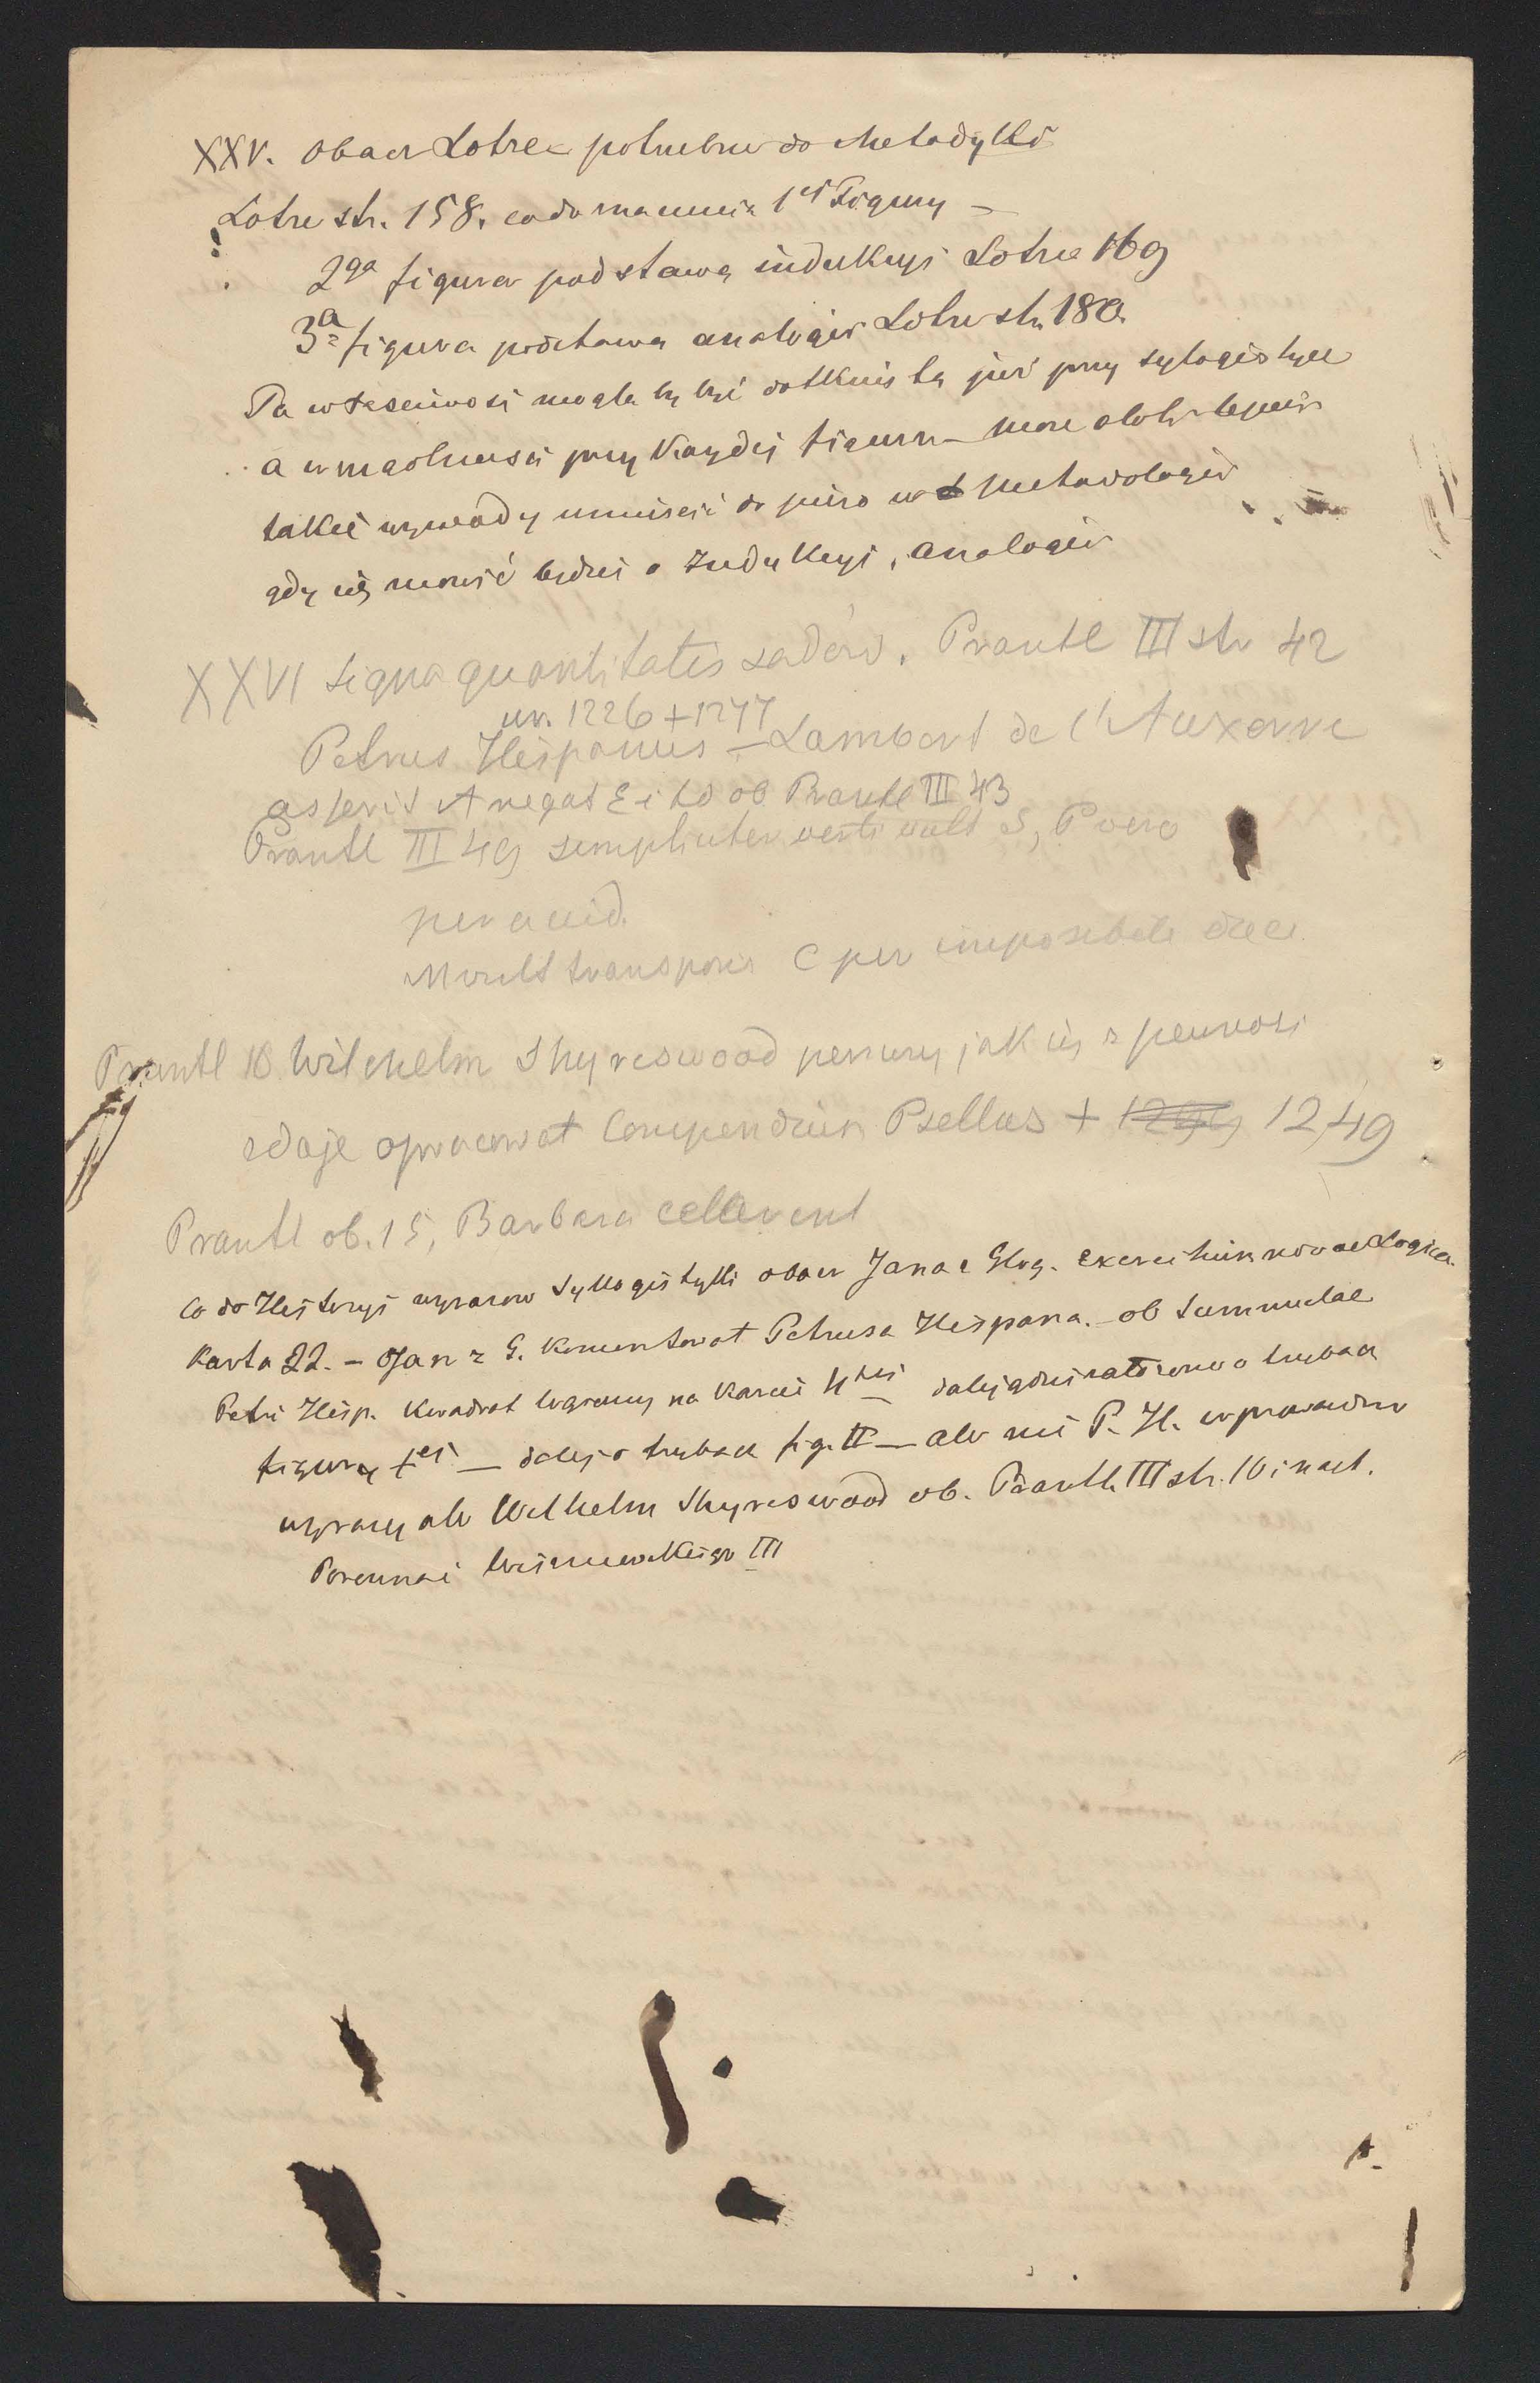 XXV. Obacz Lotze potrzebne do Metodyki
Lotze str. 158. co do znaczenia 1ej Figury —
2ga figura podstawą indukcyi Lotze 169
3a figura podstawa analogii Lotze str. 180
Ta właściwość mogła by być dotknięta już przy sylogistyce
a w szczególności przy każdej figurze — może atoli lepiej
takie wywody umieścić dopiero w metodologii
gdy się mówić będzie o Indukcyi, analogii
XXVI signa quantitatis sądów. Prantl III str 42
ur. 1226 + 1277
Petrus Hispanus — Lambert de l'Auxerre
asserit A negat E i td ob Prantl III 43
Prantl III 49 simpliciter verti vult S, P vero
per accid.
M vult transponi C per impossibile duci
Prantl 10 Wilchelm Shyreswood pierwszy jak się z pewnością
zdaje opracował Compendium Psellus + 1249
Prantl ob. 15, Barbara celarent
Co do Historyi wyrazów Syllogistyki obacz Jana z Głog. Exercitium novae Logicae
Karta 22. — Jan z G. komentował Petrusa Hispana. — ob Summulae
Petri Hisp. Kwadrat logiczny na karcie 4tej dalej o trybach
figury 1ej — dalej o trybach fig. II — ale nie P. H. wprowadził
wyrazy ale Wilhelm Shyreswood ob. Prantl III str. 10 i nast.
Porównaj Wiszniewskiego III